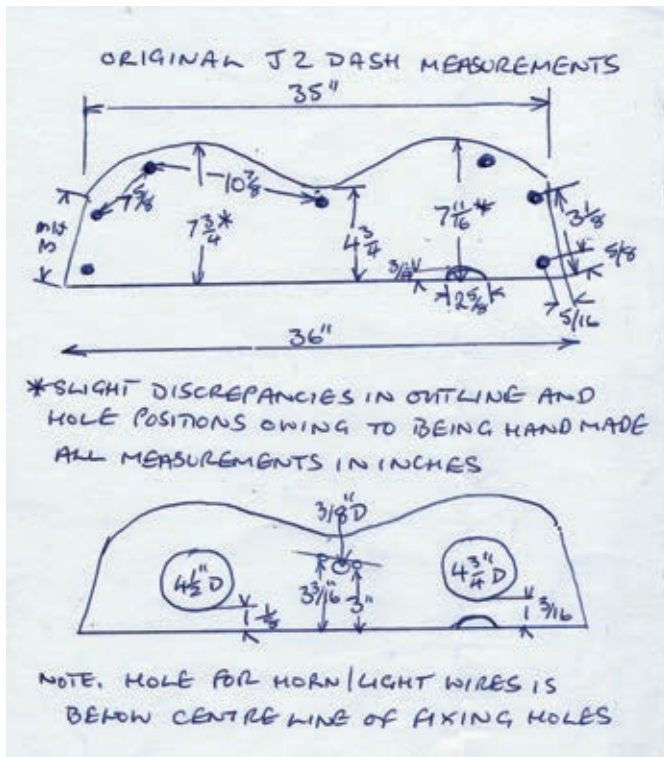 ORIGINAL J2 DASH MEASUREMENTS
35"
7 5/8
10 7/8
7 3/4*
4 3/4
7 11/16*
3 1/8
3/4
2 5/8
5/8
5/16
36"
*SLIGHT DISCREPANCIES IN OUTLINE AND
HOLE POSITIONS OWING TO BEING HAND MADE
ALL MEASUREMENTS IN INCHES
3/8"D
4 1/2"D
4 3/4"D
3 3/16
3"
1 3/16
NOTE. HOLE FOR HORN/LIGHT WIRES IS
BELOW CENTRE LINE OF FIXING HOLES